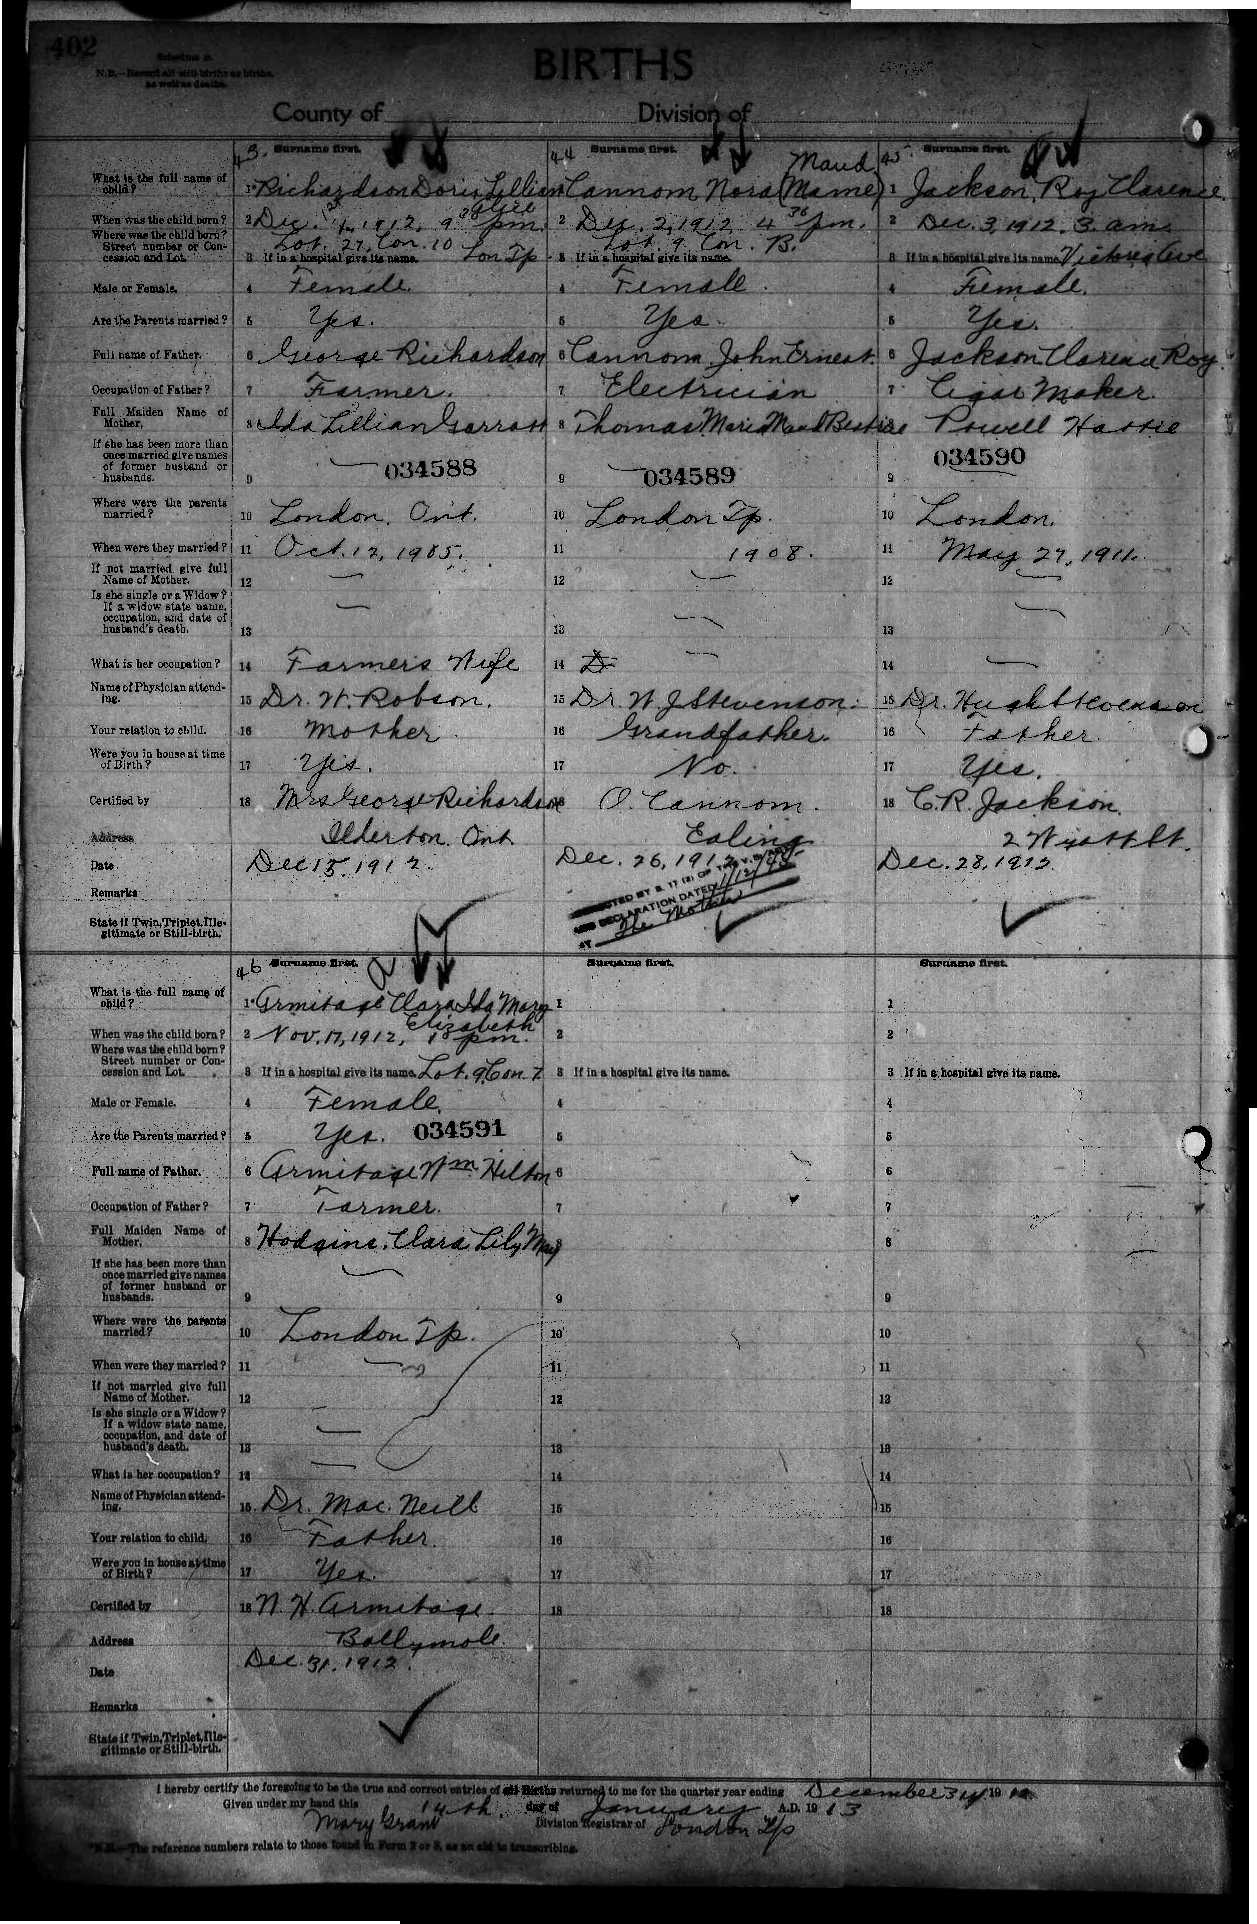 402
Schedule B.
N.B.—Record all still-births as births,
as well as deaths.
BIRTHS
County of
Division of
43. Surname first.
44 Surname first.
45 Surname first.
What is the full name of child?
1 Richardson Doris Lillian
1 Cannom Nora (Mame) Maud
1 Jackson, Roy Clarence
When was the child born?
2 Dec. 1, 1912, 9 pm.
2 Dec. 2, 1912 4 30 pm.
2 Dec. 3, 1912, 3. am.
Where was the child born? Street number or Concession and Lot.
Lot. 27, Con. 10 Lon Tp
3 If in a hospital give its name.
Lot. 9 Con. B.
3 If in a hospital give its name.
3 If in a hospital give its name. Victoria Ave
Male or Female.
4 Female
4 Female
4 Female.
Are the Parents married?
5 Yes.
5 Yes.
5 Yes.
Full name of Father.
6 George Richardson
6 Cannom John Ernest.
6 Jackson Clarence Roy.
Occupation of Father?
7 Farmer.
7 Electrician
7 Cigar Maker.
Full Maiden Name of Mother.
8 Ida Lillian Garratt
8 Thomas Maria Maud
8 Powell Hattie
If she has been more than once married give names of former husband or husbands.
9 034588
9 034589
9 034590
Where were the parents married?
10 London. Ont.
10 London Tp.
10 London.
When were they married?
11 Oct. 12, 1905.
11 1908.
11 May 27, 1911.
If not married give full Name of Mother.
12
12
12
Is she single or a Widow? If a widow state name, occupation, and date of husband's death.
13
13
13
What is her occupation?
14 Farmers Wife
14
14
Name of Physician attending.
15 Dr. W. Robson.
15 Dr W J Stevenson.
15 Dr. Hugh Stevenson
Your relation to child.
16 Mother
16 Grandfather.
16 Father
Were you in house at time of Birth?
17 Yes.
17 No.
17 Yes.
Certified by
18 Mrs George Richardson
18 O. Cannom.
18 C.R. Jackson.
Address
Ilderton. Ont.
Ealing
2 Wyatt St.
Date
Dec 15, 1912.
Dec. 26, 1912
Dec. 28, 1912
Remarks
DECLARATION DATED
AT The Mother
State if Twin, Triplet, Illegitimate or Still-birth.
46 Surname first.
Surname first.
Surname first.
What is the full name of child?
1 Armitage Clara Ida Mary
Elizabeth
1
1
When was the child born?
2 Nov. 17, 1912, 10 pm.
2
2
Where was the child born? Street number or Concession and Lot.
3 If in a hospital give its name. Lot. 9, Con. 7
3 If in a hospital give its name.
3 If in a hospital give its name.
Male or Female.
4 Female.
4
4
Are the Parents married?
5 Yes. 034591
5
5
Full name of Father.
6 Armitage Wm. Hilton
6
6
Occupation of Father?
7 Farmer.
7
7
Full Maiden Name of Mother.
8 Hodgins, Clara Lily May
8
8
If she has been more than once married give names of former husband or husbands.
9
9
9
Where were the parents married?
10 London Tp.
10
10
When were they married?
11
11
11
If not married give full Name of Mother.
12
12
12
Is she single or a Widow? If a widow state name, occupation, and date of husband's death.
13
13
13
What is her occupation?
14
14
14
Name of Physician attending.
15 Dr. Mac. Neill
15
15
Your relation to child.
16 Father.
16
16
Were you in house at time of Birth?
17 Yes.
17
17
Certified by
18 W. H. Armitage.
18
18
Address
Ballymote.
Date
Dec. 31, 1912.
Remarks
State if Twin, Triplet, Illegitimate or Still-birth.
I hereby certify the foregoing to be the true and correct entries of all Births returned to me for the quarter year ending December 31st 1912
Given under my hand this 14th. day of January A.D. 1913
Mary Grant Division Registrar of London Tp
*N.B.—The reference numbers relate to those found in Form 2 or 3, as an aid to transcribing.